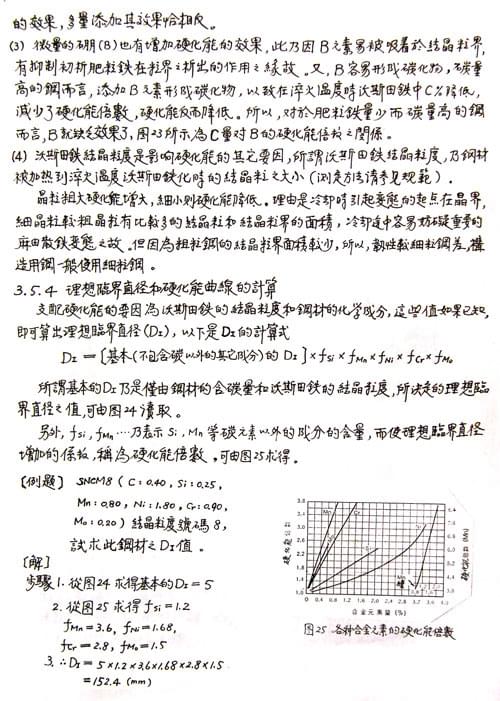 的效果，多量添加其效果恰相反。
(3) 微量的硼(B)也有增加硬化能的效果，此乃因B元素易被吸着於結晶粒界，
有抑制初析肥粒鉄在粒界之析出的作用之緣故。又，B容易形成碳化物，碳量
高的鋼而言，添加B元素形成碳化物，以致在淬火溫度時沃斯田鉄中C%降低，
減少了硬化能倍數，硬化能反而降低。所以，对於肥粒鉄量少而碳量高的鋼
而言，B就缺乏效果了，图23所示，為C量对B的硬化能倍數之関係。
(4) 沃斯田鉄結晶粒度是影响硬化能的其它要因，所謂沃斯田鉄結晶粒度，乃鋼材
被加热到淬火溫度沃斯田鉄化時的結晶粒之大小（測定方法請参見規範）.
晶粒粗大硬化能增大，細小則硬化能降低。理由是冷却時引起変態的起点在晶界，
細晶粒較粗晶粒有比較多的結晶粒和結晶粒界的面積，冷却途中容易妨碍重要的
麻田散鉄変態之故。但因為粗粒鋼的結晶粒界面積較少，所以，韌性較細粒鋼差，構
造用鋼一般使用細粒鋼。
3.5.4 理想臨界直徑和硬化能曲線的計算
支配硬化能的要因為沃斯田鉄的結晶粒度和鋼材的化学成分，这些值如果已知，
即可算出理想臨界直徑(DI)，以下是DI的計算式
DI =〔基本(不包含碳以外的其它成分)的 DI〕× fSi × fMn × fNi × fCr × fMo
所謂基本的DI乃是僅由鋼材的含碳量和沃斯田鉄的結晶粒度，所决定的理想臨
界直徑之值，可由图24讀取。
另外，fSi，fMn …乃表示Si，Mn等碳元素以外的成分的含量，而使理想臨界直徑
增加的係數，稱為硬化能倍數。可由图25求得。
〔例題〕 SNCM8 ( C : 0.40，Si : 0.25，
Mn : 0.80，Ni : 1.80，Cr : 0.90，
Mo : 0.20 ) 結晶粒度號碼8，
試求此鋼材之DI值。
〔解〕
步驟1. 從图24求得基本的DI = 5
2. 從图25求得 fSi = 1.2
fMn = 3.6，fNi = 1.68，
fCr = 2.8，fMo = 1.5
3. ∴DI = 5×1.2×3.6×1.68×2.8×1.5
= 152.4 (mm)
3.8
3.4
3.0
2.6
2.2
1.8
1.4
1.0
Mn
Cr
Si
Ni
Mn
0 0.4 0.8 1.2 1.6 2.0 2.4 2.8 3.2 3.6
合金元素量 (%)
硬化能倍數
硬化能倍數 (Mn)
图25 各种合金元素的硬化能倍數